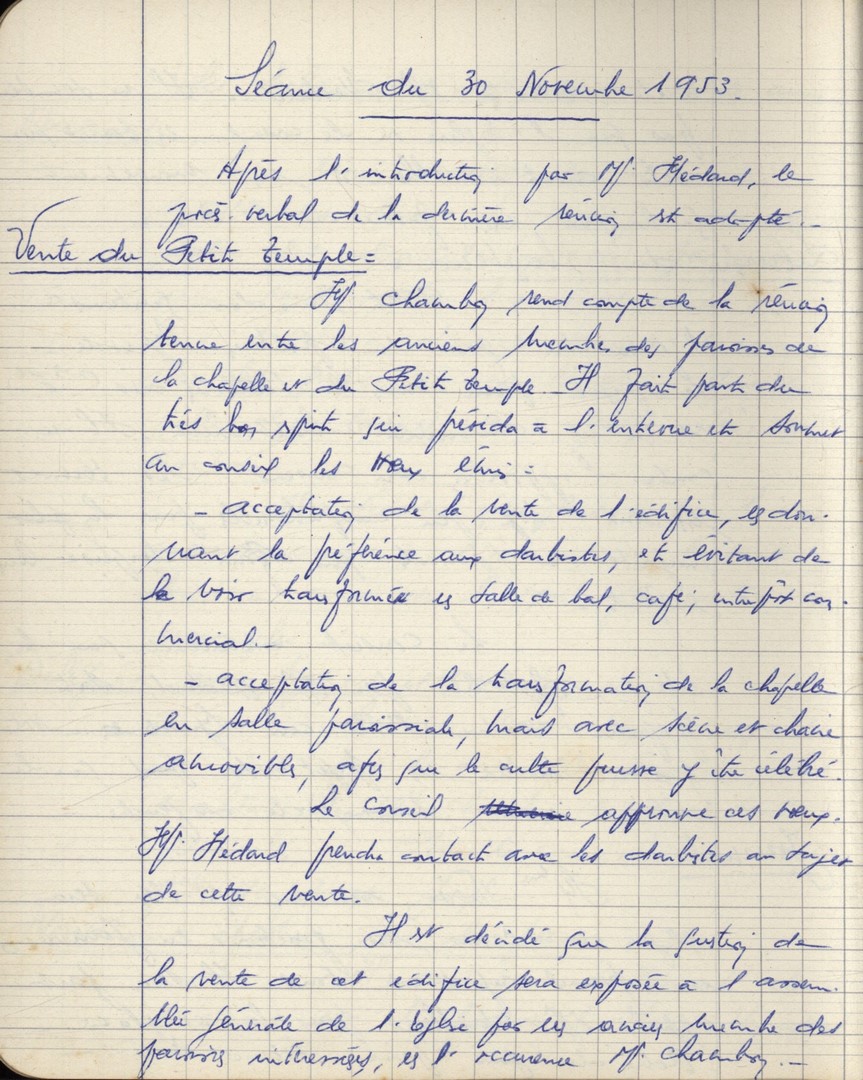 Séance du 30 Novembre 1953.
Après l'introduction par M. Médard, le
procès-verbal de la dernière réunion est adopté.-
Vente du Petit Temple =
M. Chambon rend compte de la réunion
tenue entre les anciens membres des paroisses de
la chapelle et du Petit Temple. Il fait part du
très bon esprit qui présida à l'entrevue et soumet
au conseil les vœux émis =
- acceptation de la vente de l'édifice, en don-
nant la préférence aux darbistes, et évitant de
le voir transformer en salle de bal, café, entrepôt com-
mercial.-
- acceptation de la transformation de la chapelle
en salle paroissiale, mais avec scène et chaire
amovibles, afin que le culte puisse y être célébré.
Le Conseil approuve ces vœux.
M. Médard prendra contact avec les darbistes au sujet
de cette vente.
Il est décidé que la question de
la vente de cet édifice sera exposée à l'assem-
blée générale de l'église par un ancien membre des
paroisses intéressées, en l'occurence M. Chambon.-